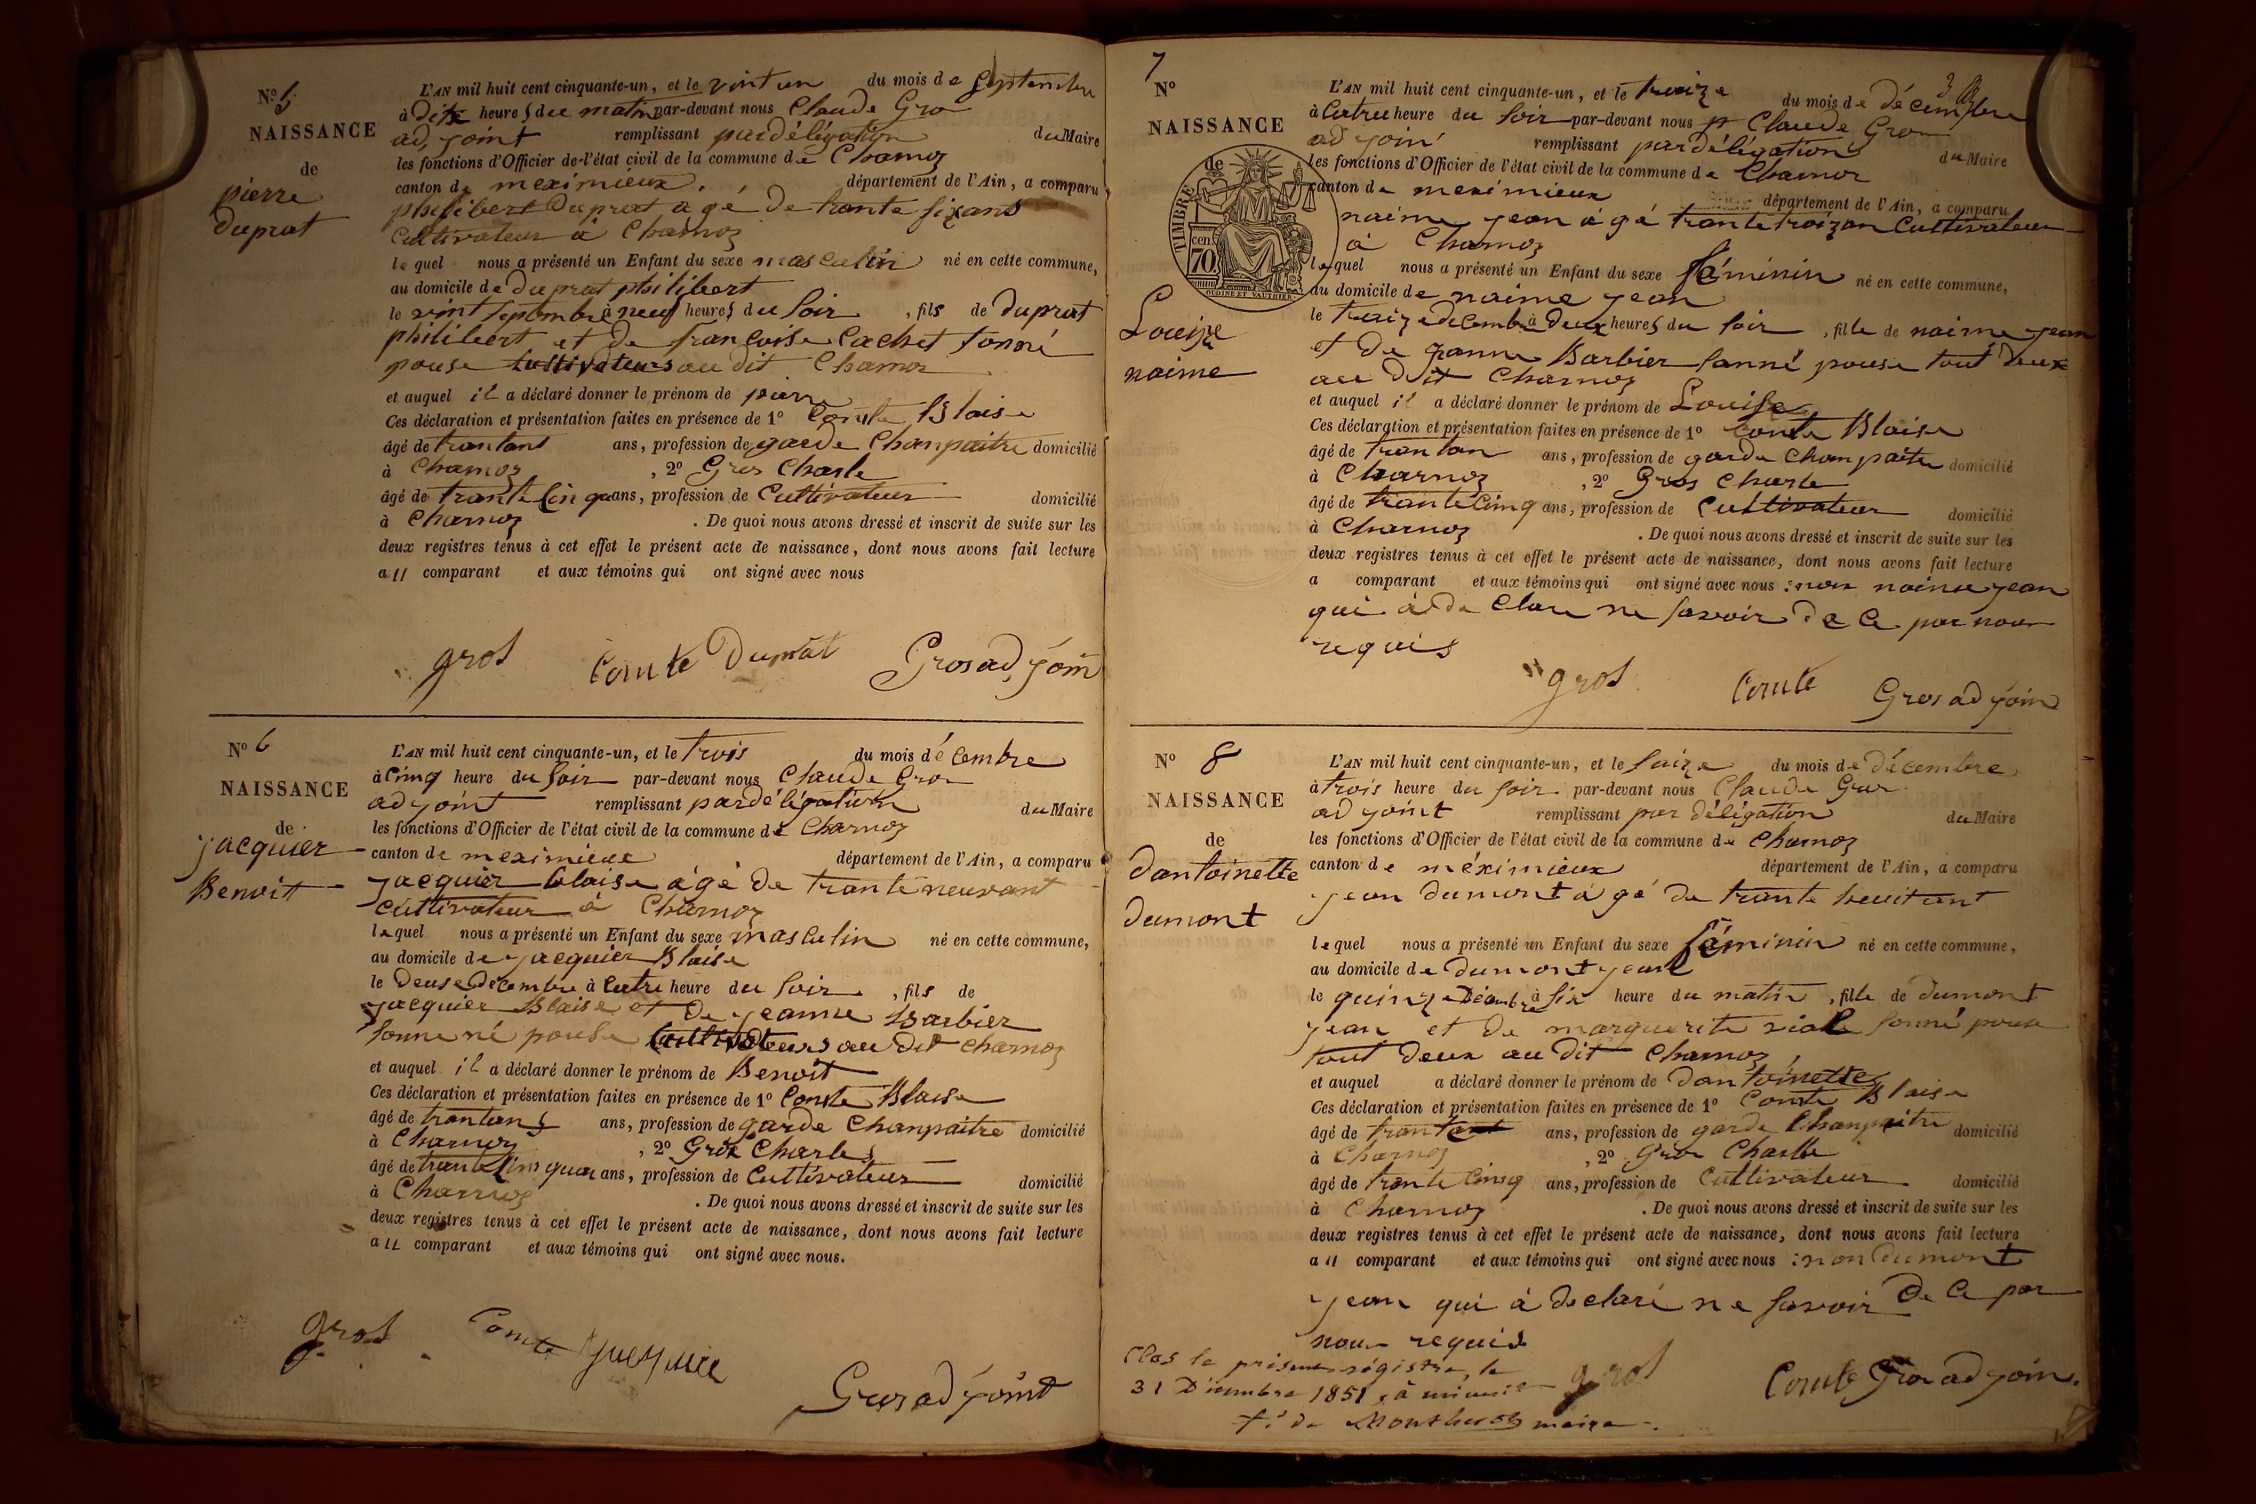 No 5
NAISSANCE
de
pierre
duprat
L'AN mil huit cent cinquante-un, et le vint un du mois de Septembre
à dix heures du matin par-devant nous Claude Gro
adjoint remplissant par délégation du Maire
les fonctions d'Officier de l'état civil de la commune de Charnoz
canton de meximieux. département de l'Ain, a comparu
philibert Duprat agé de trante sixans
Cultivateur a Charnoz
lequel nous a présenté un Enfant du sexe masculin né en cette commune,
au domicile de duprat philibert
le vint Septembre à neuf heures du Soir, fils de duprat
philibert et de francoise Cachet sonné
pouse Cultivateurs au dit Charnoz
et auquel il a déclaré donner le prénom de pierre
Ces déclaration et présentation faites en présence de 1° Comte Blaise
âgé de trantans ans, profession de garde Chanpaitre domicilié
à Charnoz, 2° Gros Charle
âgé de trante Cinquans, profession de Cultivateur domicilié
à Charnoz. De quoi nous avons dressé et inscrit de suite sur les
deux registres tenus à cet effet le présent acte de naissance, dont nous avons fait lecture
a u comparant et aux témoins qui ont signé avec nous
gros Comte Duprat Gros adjoin
No 6
NAISSANCE
de
jacquier
Benoit
L'AN mil huit cent cinquante-un, et le trois du mois décembre
à Cinq heure du Soir par-devant nous Claude Gros
adjoint remplissant par délégation du Maire
les fonctions d'Officier de l'état civil de la commune de Charnoz
canton de meximieux département de l'Ain, a comparu
jacquier blaise agé de trante neuvant
cultivateur à Charnoz
lequel nous a présenté un Enfant du sexe masculin né en cette commune,
au domicile de jacquier Blaise
le deuse décembre à Catre heure du Soir, fils de
jacquier Blaise et de jeanne Barbier
sonne né pouse Cultivateurs au dit Charnoz
et auquel il a déclaré donner le prénom de Benoit
Ces déclaration et présentation faites en présence de 1° Comte Blaise
âgé de trantans ans, profession de garde Chanpaitre domicilié
à Charnoz, 2° Gros Charles
âgé de trante Cinquan ans, profession de Cultivateur domicilié
à Charnoz. De quoi nous avons dressé et inscrit de suite sur les
deux registres tenus à cet effet le présent acte de naissance, dont nous avons fait lecture
a u comparant et aux témoins qui ont signé avec nous.
gros Comte
Gros adjoint
7
No
NAISSANCE
de
TIMBRE
cen. 70
OUDINÉ ET VAUTHIER
Louise
naime
L'AN mil huit cent cinquante-un, et le treize du mois de décembre
à Catre heure du Soir par-devant nous Claude Gros
adjoint remplissant par délégation du Maire
les fonctions d'Officier de l'état civil de la commune de Charnoz
canton de meximieux département de l'Ain, a comparu
naime jean agé trante troizan Cultivateur
à Charnoz
lequel nous a présenté un Enfant du sexe féminin né en cette commune,
au domicile de naime jean
le treize decembre à deux heures du soir, fille de naime jean
et de Barbier sonné pouse tout deux
au dit Charnoz
et auquel il a déclaré donner le prénom de Louise
Ces déclaration et présentation faites en présence de 1° Comte Blaise
âgé de trantan ans, profession de garde Chanpaitre domicilié
à Charnoz, 2° Gros Charle
âgé de trante Cinq ans, profession de Cultivateur domicilié
à Charnoz. De quoi nous avons dressé et inscrit de suite sur les
deux registres tenus à cet effet le présent acte de naissance, dont nous avons fait lecture
a comparant et aux témoins qui ont signé avec nous: non naime jean
qui à de Clare ne savoir de Ce par nour
requis
gros Comte Gros adjoin
No 8
NAISSANCE
de
dantoinette
dumont
L'AN mil huit cent cinquante-un, et le saize du mois de décembre
à trois heure du soir par-devant nous Claude Gros
adjoint remplissant par délégation du Maire
les fonctions d'Officier de l'état civil de la commune de Charnoz
canton de méximieux département de l'Ain, a comparu
jean dumont agé de trante huitant
lequel nous a présenté un Enfant du sexe féminin né en cette commune,
au domicile de dumont jean
le quinze Décembre à Six heure du matin, fille de dumont
jean et de marguerite sonné pouse
tout deux au dit Charnoz
et auquel a déclaré donner le prénom de dantoinette
Ces déclaration et présentation faites en présence de 1° Comte Blaise
âgé de trantant ans, profession de garde Chanpaitre domicilié
à Charnoz, 2° Gros Charle
âgé de trante Cinq ans, profession de Cultivateur domicilié
à Charnoz. De quoi nous avons dressé et inscrit de suite sur les
deux registres tenus à cet effet le présent acte de naissance, dont nous avons fait lecture
a u comparant et aux témoins qui ont signé avec nous: non dumont
jean qui à declaré ne savoir de Ce par
nour requis
Clos le présent régistre, le
31 Décembre 1851, à minuit
gros Comte Gros adjoin.
maire